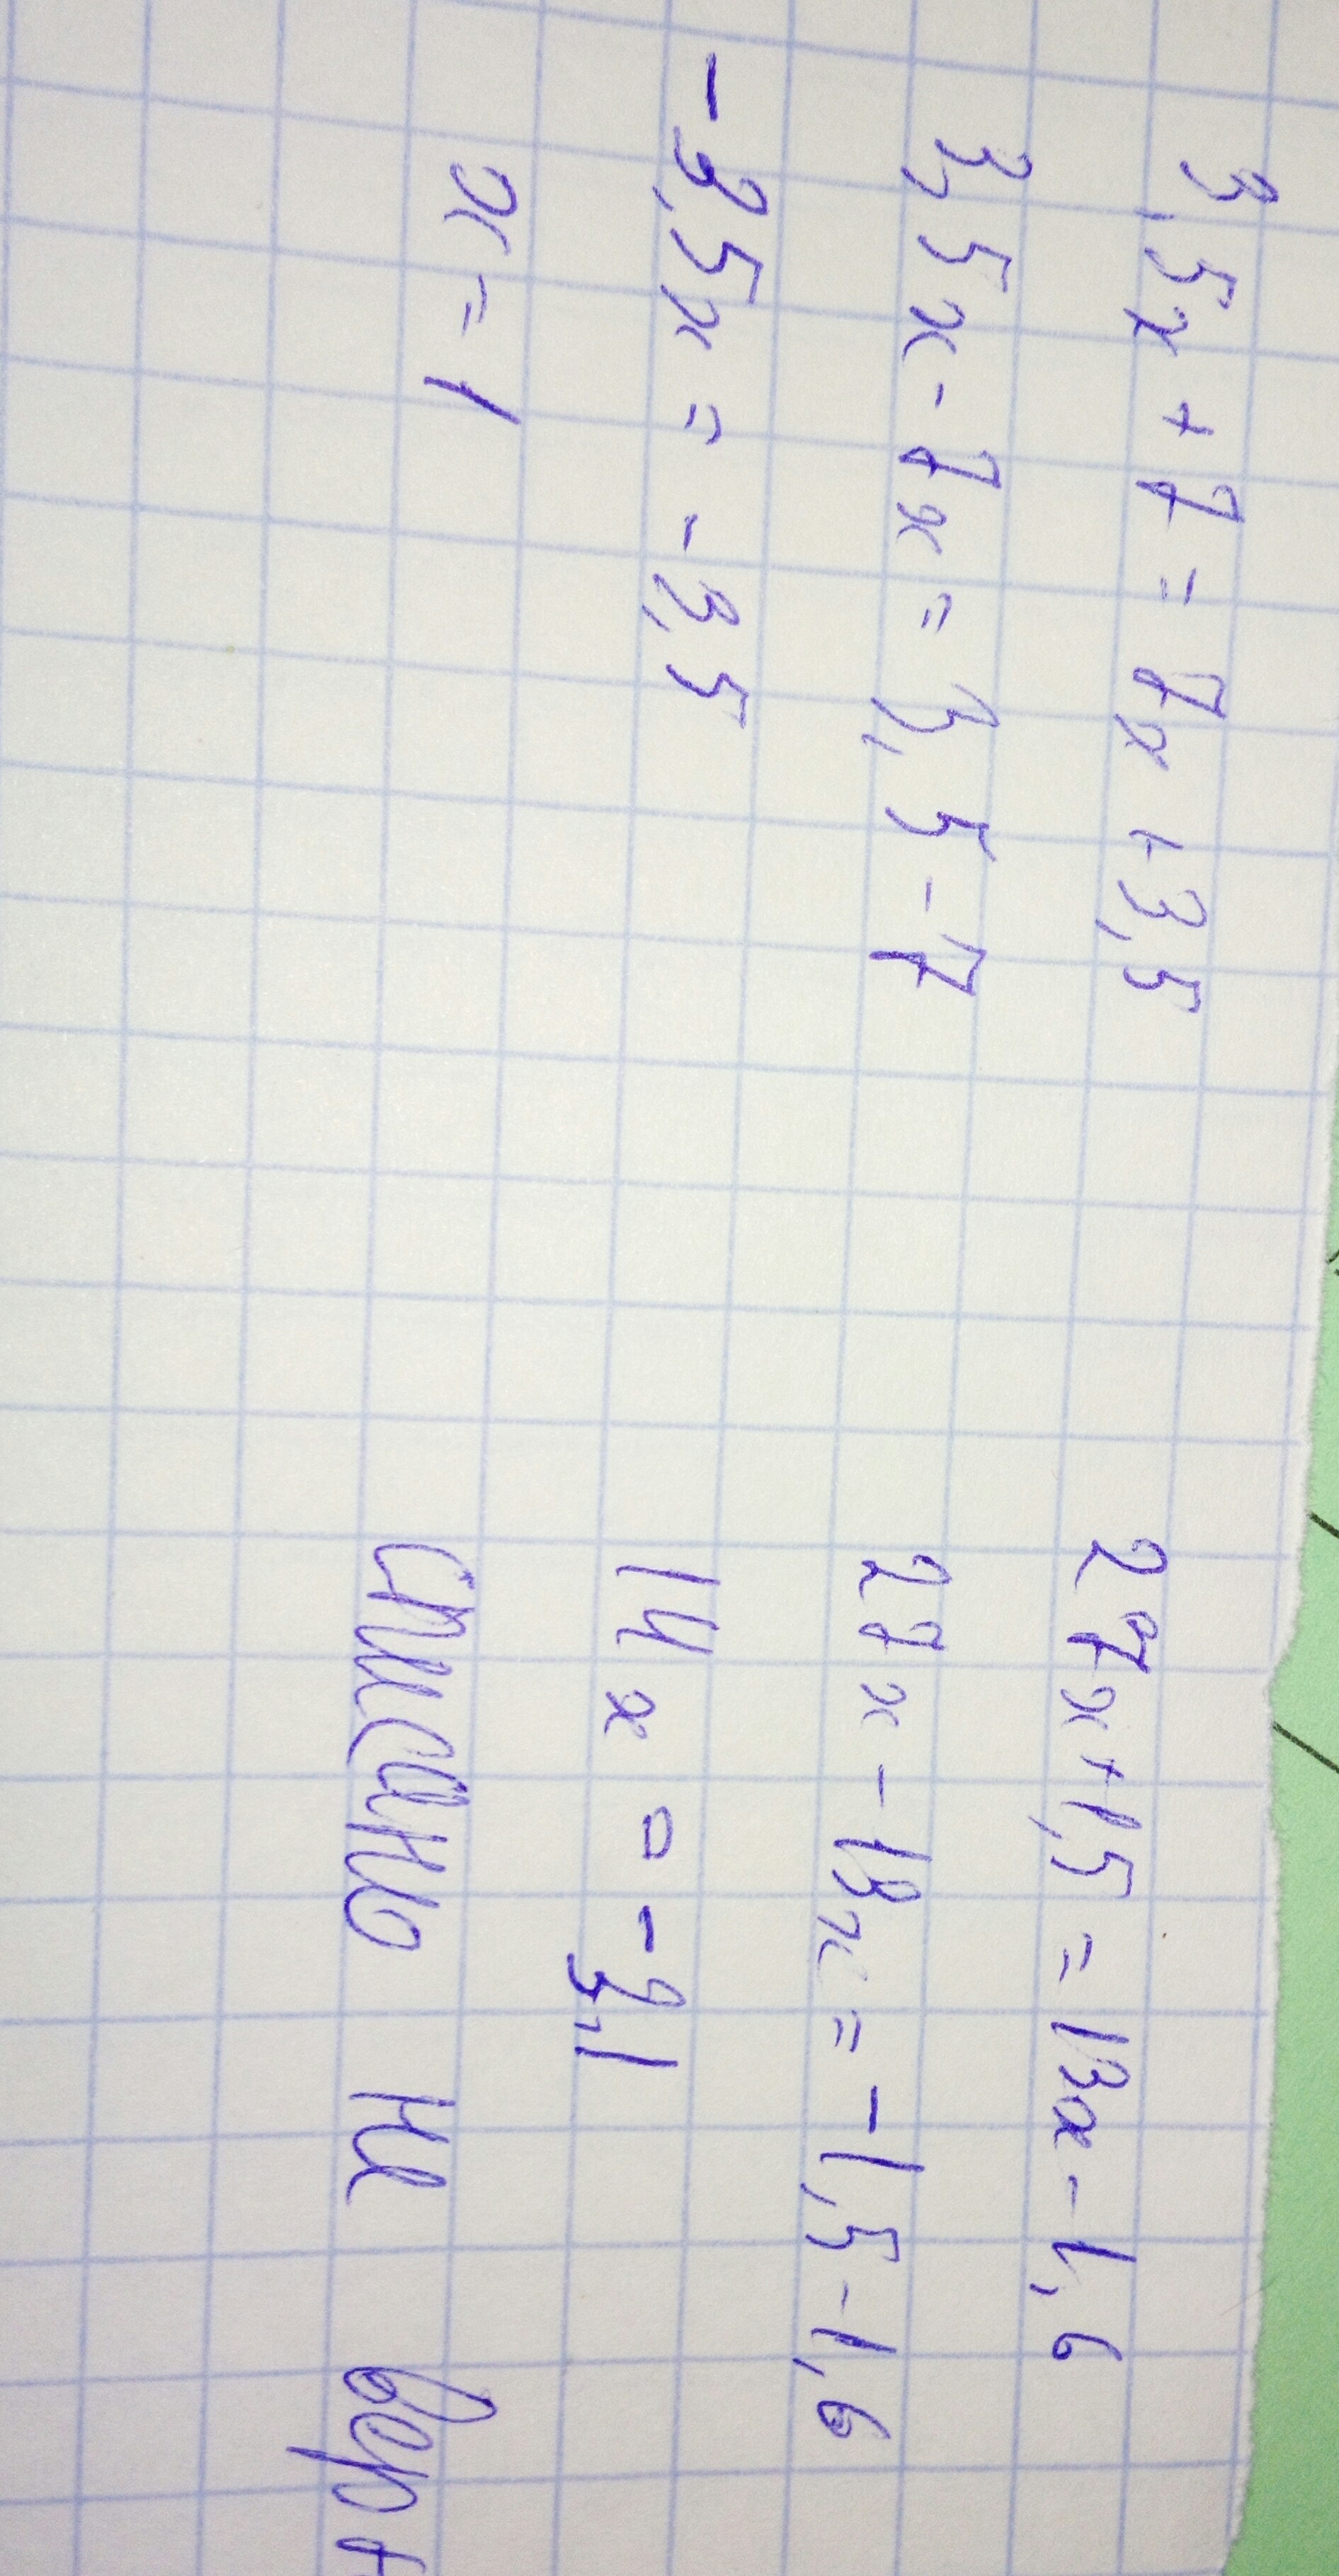 3,5x + 7 = 7x + 3,5
3,5x - 7x = 3,5 - 7
-3,5x = -3,5
x = 1
27x + 1,5 = 13x - 1,6
27x - 13x = -1,5 - 1,6
14x = -3,1
списано не верн